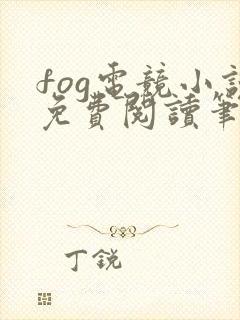 fog電競小說
免費閱讀筆
丁銳